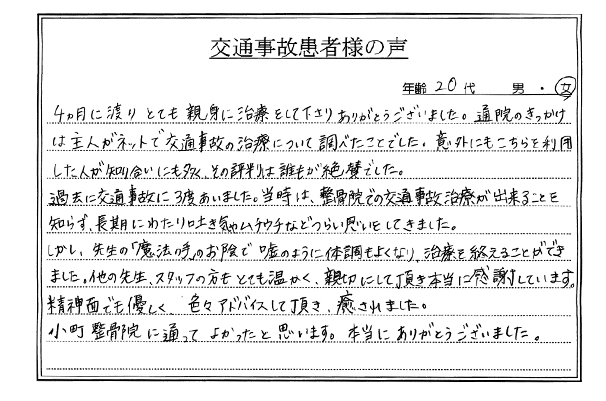 交通事故患者様の声
年齢 20代 男・女
4ヵ月に渡り とても 親身に治療をして下さり ありがとうございました。通院のきっかけ
は主人がネットで交通事故の治療について調べたことでした。意外にもこちらを利用
した人が知り合いにも多く、その評判は誰もが絶賛でした。
過去に交通事故に3度あいました。当時は、整骨院での交通事故治療が出来ることを
知らず、長期にわたり吐き気やムチウチなどつらい思いをしてきました。
しかし、先生の「魔法の手」のお陰で嘘のように体調もよくなり、治療を終えることができ
ました。他の先生、スタッフの方もとても温かく、親切にして頂き本当に感謝しています。
精神面でも優しく、色々アドバイスして頂き、癒されました。
小町整骨院に通って よかったと思います。本当にありがとうございました。